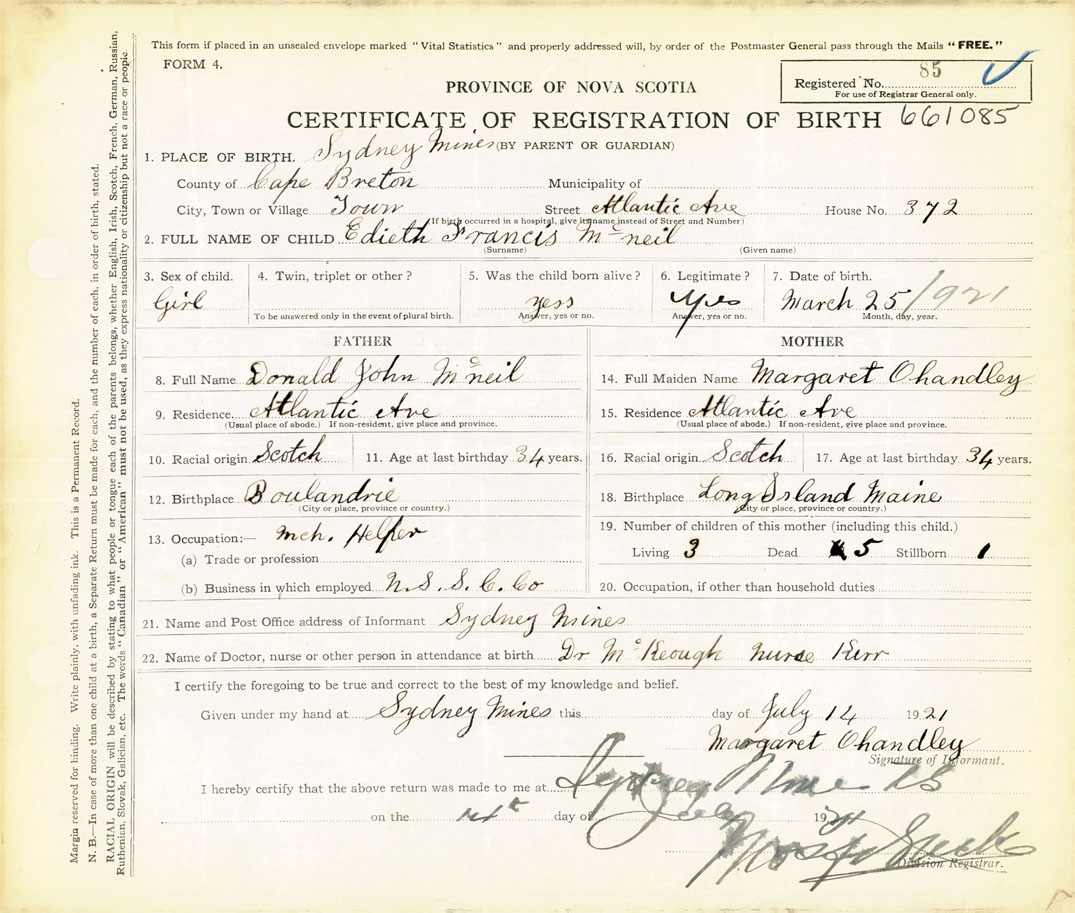 This form if placed in an unsealed envelope marked "Vital Statistics" and properly addressed will, by order of the Postmaster General pass through the Mails "FREE."
FORM 4.
Registered No. 85
For use of Registrar General only.
PROVINCE OF NOVA SCOTIA
CERTIFICATE OF REGISTRATION OF BIRTH 661085
1. PLACE OF BIRTH. Sydney Mines (BY PARENT OR GUARDIAN)
County of Cape Breton Municipality of
City, Town or Village Town Street Atlantic Ave House No. 372
(If birth occurred in a hospital, give its name instead of Street and Number)
2. FULL NAME OF CHILD Edieth Francis Mcneil
(Surname) (Given name)
3. Sex of child. 4. Twin, triplet or other? 5. Was the child born alive? 6. Legitimate? 7. Date of birth.
Girl yess Yes March 25/1921
To be answered only in the event of plural birth. Answer, yes or no. Answer, yes or no. Month, day, year.
FATHER MOTHER
8. Full Name Donald John Mcneil 14. Full Maiden Name Margaret Ohandley
9. Residence. Atlantic Ave 15. Residence Atlantic Ave
(Usual place of abode.) If non-resident, give place and province. (Usual place of abode.) If non-resident, give place and province.
10. Racial origin Scotch 11. Age at last birthday 34 years. 16. Racial origin Scotch 17. Age at last birthday 34 years.
12. Birthplace Boulandrie 18. Birthplace Long Island Maine
(City or place, province or country.) (City or place, province or country.)
13. Occupation:— Mch. Helper 19. Number of children of this mother (including this child.)
(a) Trade or profession Living 3 Dead 5 Stillborn 1
(b) Business in which employed N.S.S.C.Co 20. Occupation, if other than household duties
21. Name and Post Office address of Informant Sydney Mines
22. Name of Doctor, nurse or other person in attendance at birth Dr McKeough Nurse Kerr
I certify the foregoing to be true and correct to the best of my knowledge and belief.
Given under my hand at Sydney Mines this day of July 14 1921
Margaret Ohandley
Signature of Informant.
I hereby certify that the above return was made to me at Sydney Mines NS
on the 14th day of July 1921
Division Registrar.
Margin reserved for binding. Write plainly, with unfading ink. This is a Permanent Record.
N. B.—In case of more than one child at a birth, a Separate Return must be made for each, and the number of each, in order of birth, stated.
RACIAL ORIGIN will be described by stating to what people or tongue each of the parents belongs, whether English, Irish, Scotch, French, German, Russian,
Ruthenian, Slovak, Galician, etc. The words "Canadian" or "American" must not be used, as they express nationality or citizenship but not a race or people.